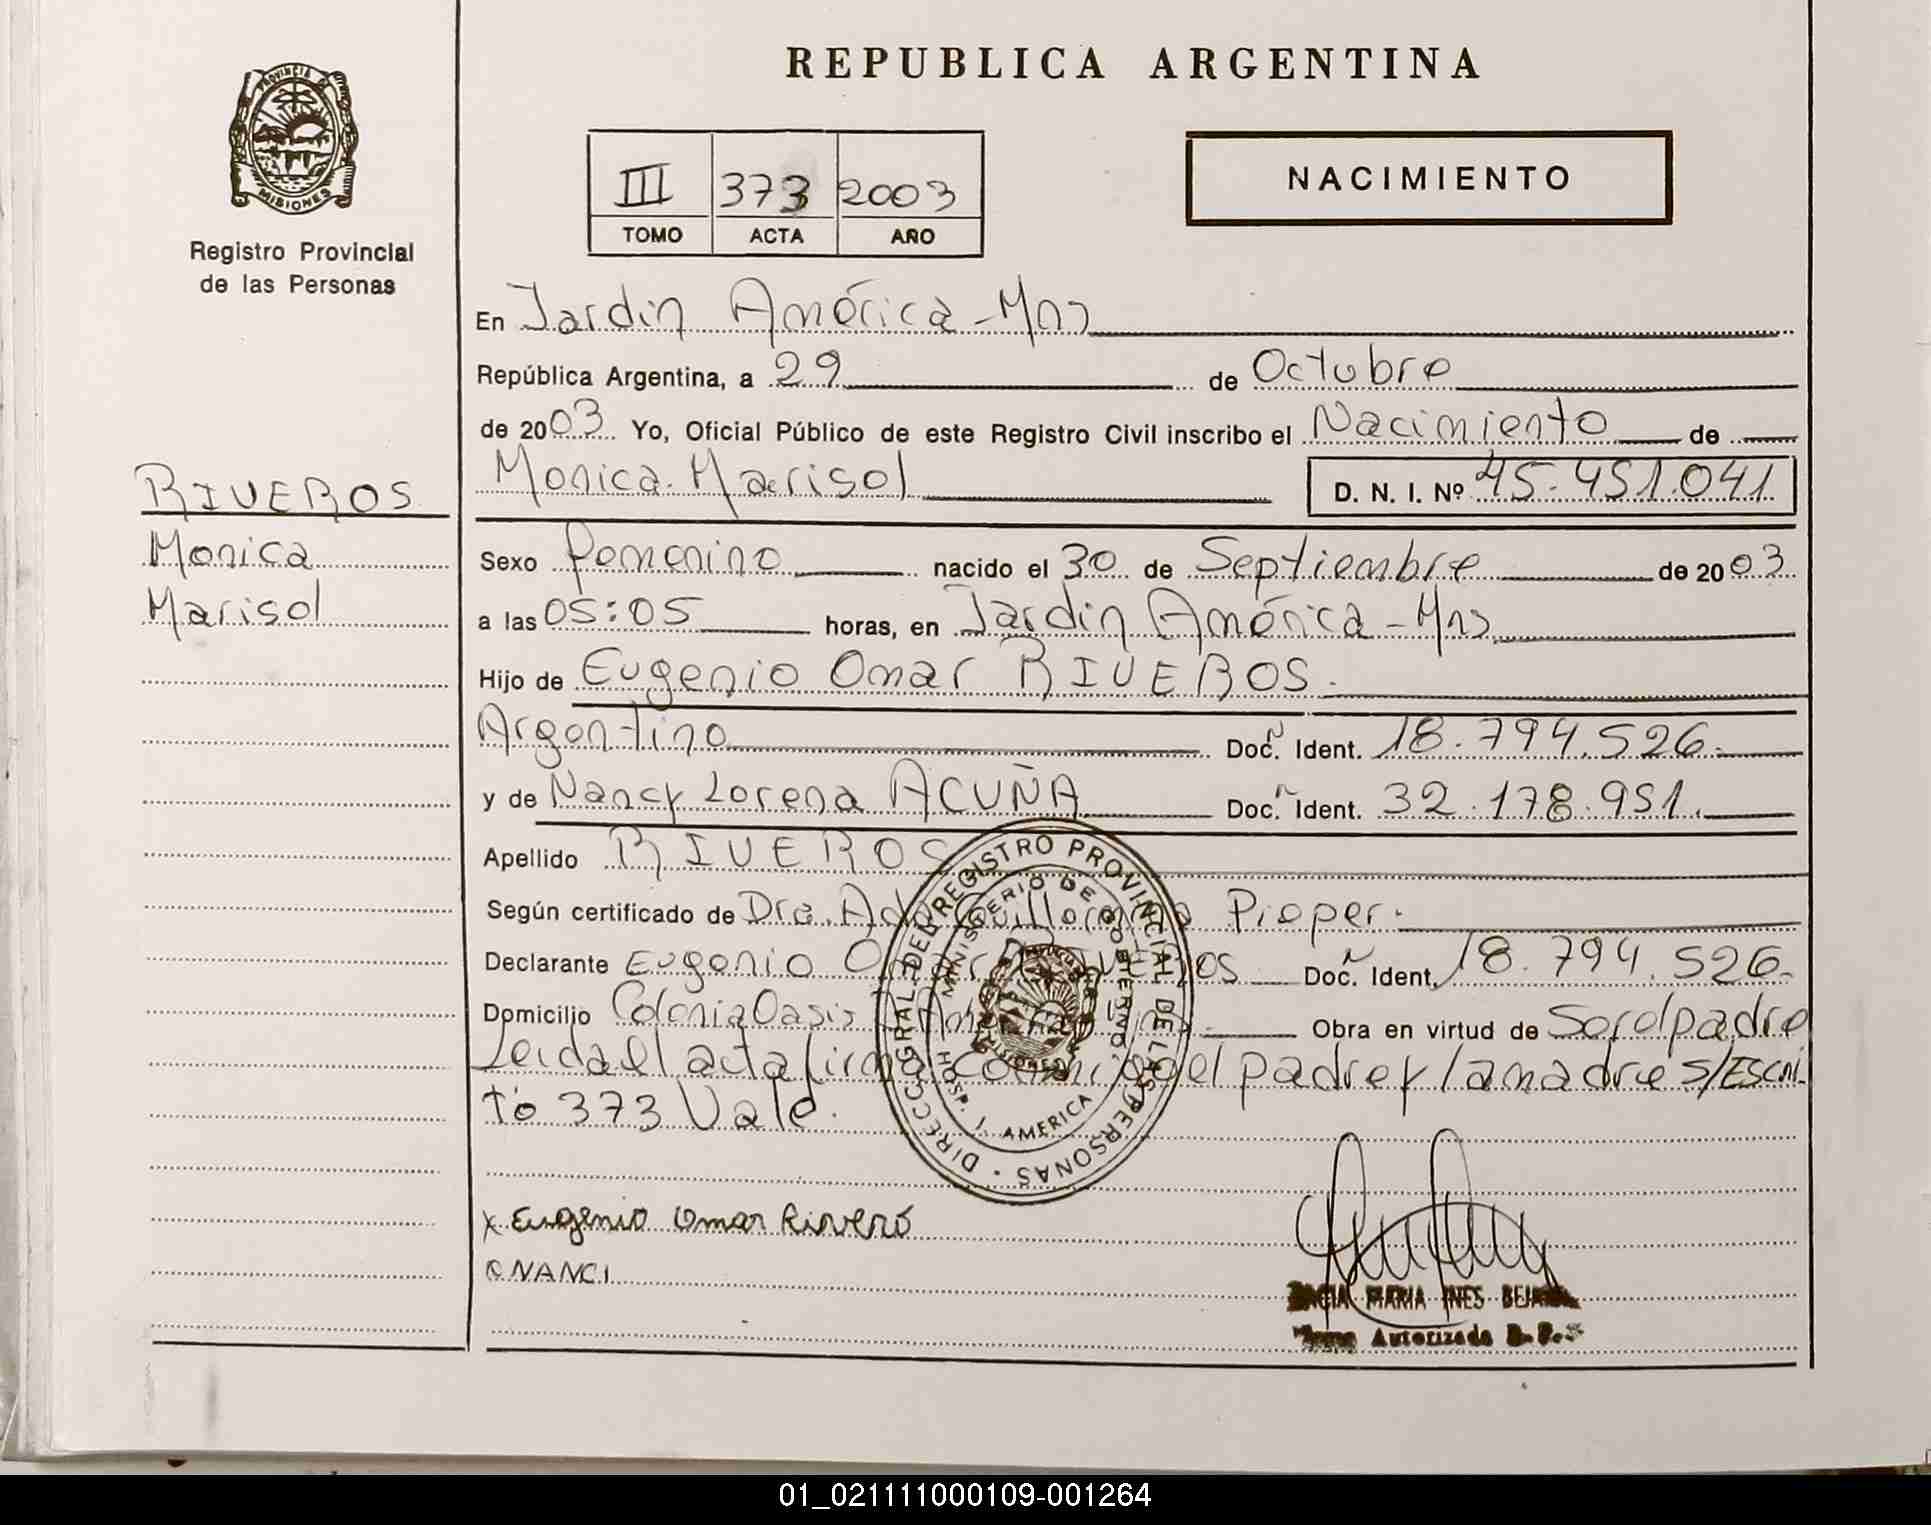 REPUBLICA ARGENTINA
PROVINCIA DE MISIONES
Registro Provincial
de las Personas
III 373 2003
TOMO ACTA AÑO
NACIMIENTO
En Jardin América - Mns
República Argentina, a 29 de Octubre
de 2003 Yo, Oficial Público de este Registro Civil inscribo el Nacimiento de
Monica Marisol D. N. I. Nº 45.451.041
RIVEROS
Monica
Marisol
Sexo Femenino nacido el 30 de Septiembre de 2003
a las 05:05 horas, en Jardin América - Mns
Hijo de Eugenio Omar RIVEROS.
Argentino Doc. Ident. 18.794.526.
y de Nancy Lorena ACUÑA Doc. Ident. 32.178.951.
Apellido RIVEROS
Según certificado de Dra. Ada Pieper.
Declarante Eugenio Omar RIVEROS Doc. Ident. 18.794.526.
Domicilio Colonia Oasis Obra en virtud de Ser el padre
Leida el acta firma conmigo el padre y la madre s/Escri
to 373 Vale.
DIRECC. GRAL. DEL REGISTRO PROVINCIAL DE LAS PERSONAS
MINISTERIO DE GOBIERNO
HOSP. J. AMERICA
x Eugenio Omar Rivero
NANCI
MARIA INES
Autorizada
01_021111000109-001264